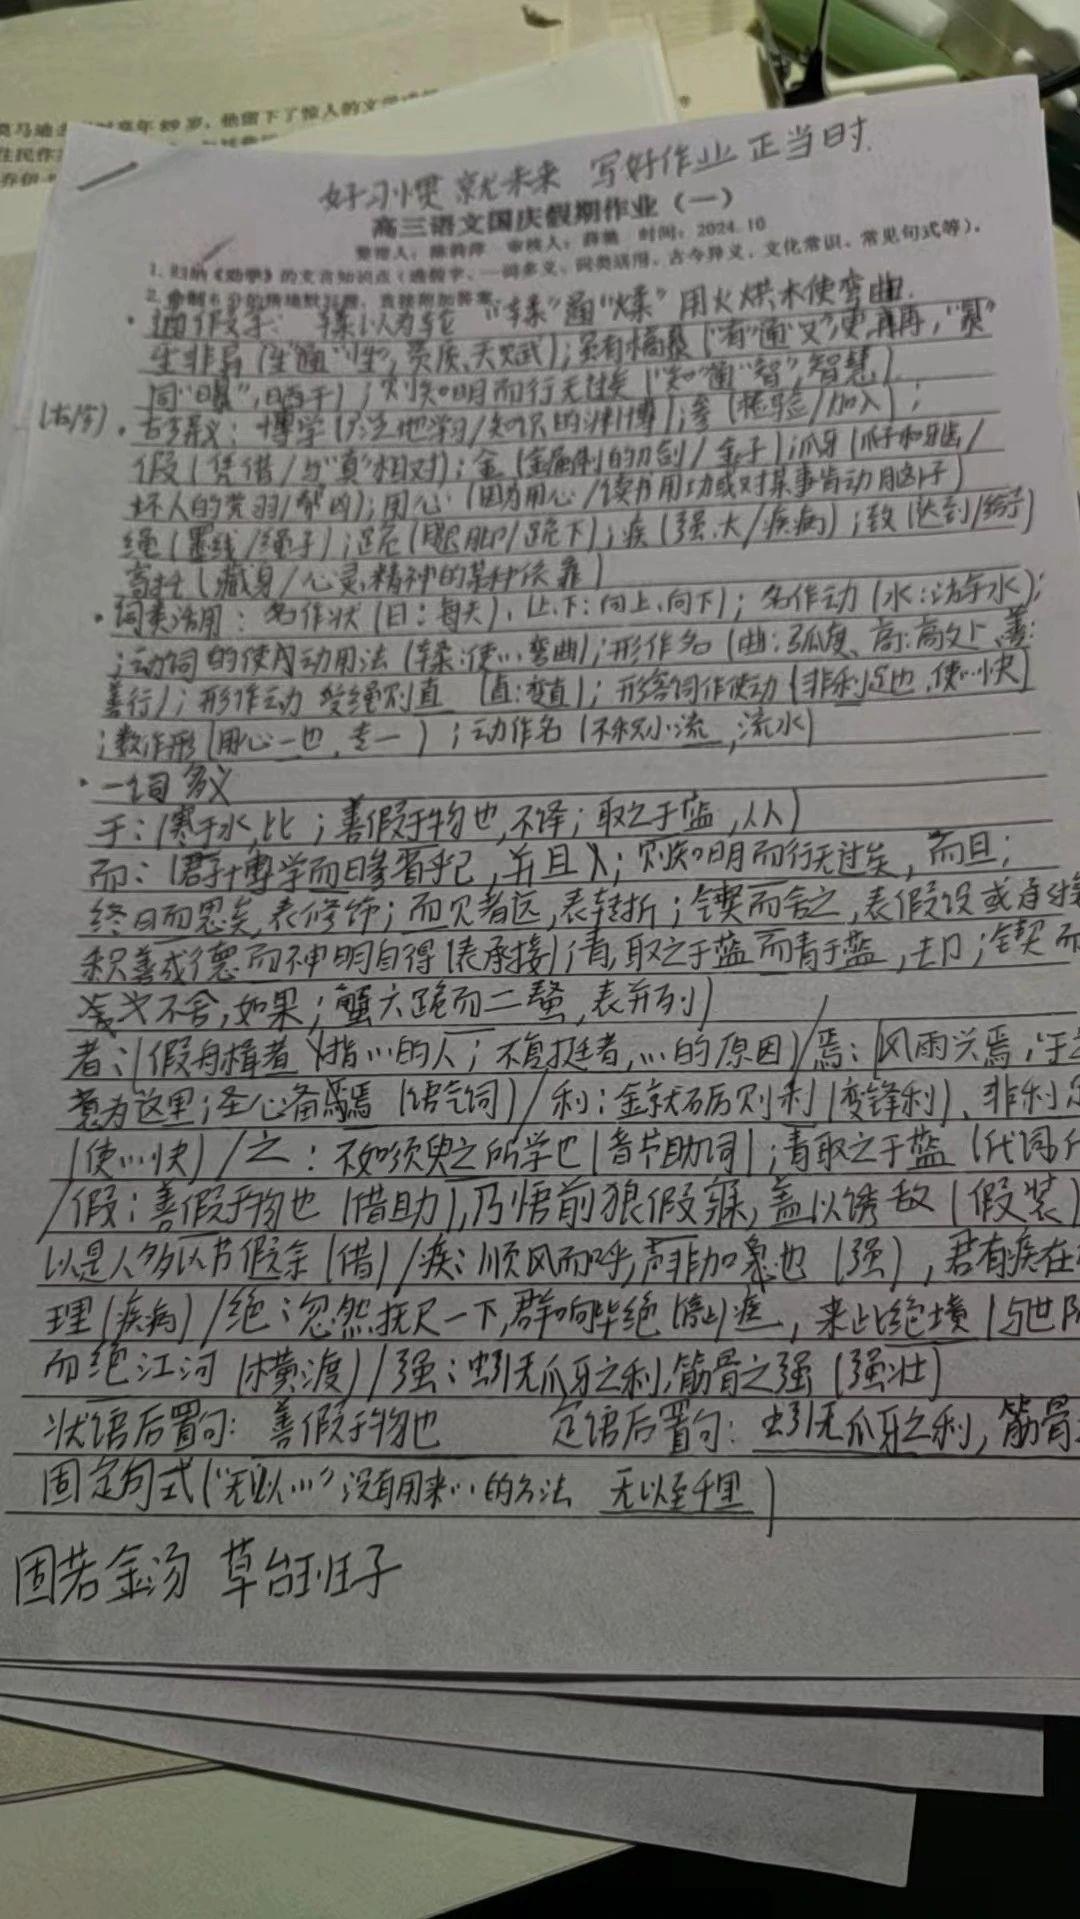 享年89岁，他留下了惊人的文学
住民作
乔伊
好习惯 就未来 写好作业 正当时.
高三语文国庆假期作业（一）
审核人：时间：2024.10
1. 归纳《劝学》的文言知识点（通假字、一词多义、词类活用、古今异义、文化常识、常见句式等）。
2.
·通假字： 輮以为轮 “輮”通“煣” 用火烘木使弯曲.
生非异（“生”通“性”，资质、天赋）；虽有槁暴（“有”通“又”，更，再，“暴”
同“曝”，晒干）；则知明而行无过矣（“知”通“智”，智慧）
(古/今)·古今异义：博学（广泛地学习/知识的渊博）；参（检验/加入）；
假（凭借/与“真”相对）；金（金属制的刀剑/金子）；爪牙（爪子和牙齿/
坏人的党羽/帮凶）；用心（因为用心/读书用功或对某事肯动脑子）
绳（墨线/绳子）；跪（腿脚/跪下）；疾（强、大/疾病）；致（达到/给予）
寄托（藏身/心灵，精神的某种依靠）
·词类活用：名作状（日：每天），（上、下：向上、向下）；名作动（水：游水）；
；动词的使动用法（輮：使…弯曲）；形作名（曲：弧度、高：高处）、善：
善行）；形作动 受绳则直（直：变直）；形容词作使动（非利足也，使…快）
；数作形（用心一也，专一）；动作名（不积小流，流水）
·一词多义
于：（寒于水，比；善假于物也，不译；取之于蓝，从）
而：（君子博学而日参省乎己，并且）；则知明而行无过矣，而且；
终日而思矣，表修饰；而见者远，表转折；锲而舍之，表假设或承接
积善成德而神明自得（表承接）；青，取之于蓝而青于蓝，却；锲而
不舍，如果；蟹六跪而二螯，表并列）
者：（假舟楫者（指…的人；不复挺者，…的原因）/焉：（风雨兴焉，
意为这里；圣心备焉（语气词）/利：金就砺则利（变锋利）、非利足
（使…快）/之：不如须臾之所学也（音节助词）；青取之于蓝（代词
/假：善假于物也（借助），乃悟前狼假寐，盖以诱敌（假装）
以是人多以书假余（借）/疾：顺风而呼，声非加疾也（强），君有疾在
理（疾病）/绝：忽然抚尺一下，群响毕绝（停止），来此绝境（与世隔
而绝江河（横渡）/强：蚓无爪牙之利，筋骨之强（强壮）
状语后置句：善假于物也 定语后置句：蚓无爪牙之利，筋骨
固定句式（“无以…”没有用来…的方法 无以至千里）
固若金汤 草台班子